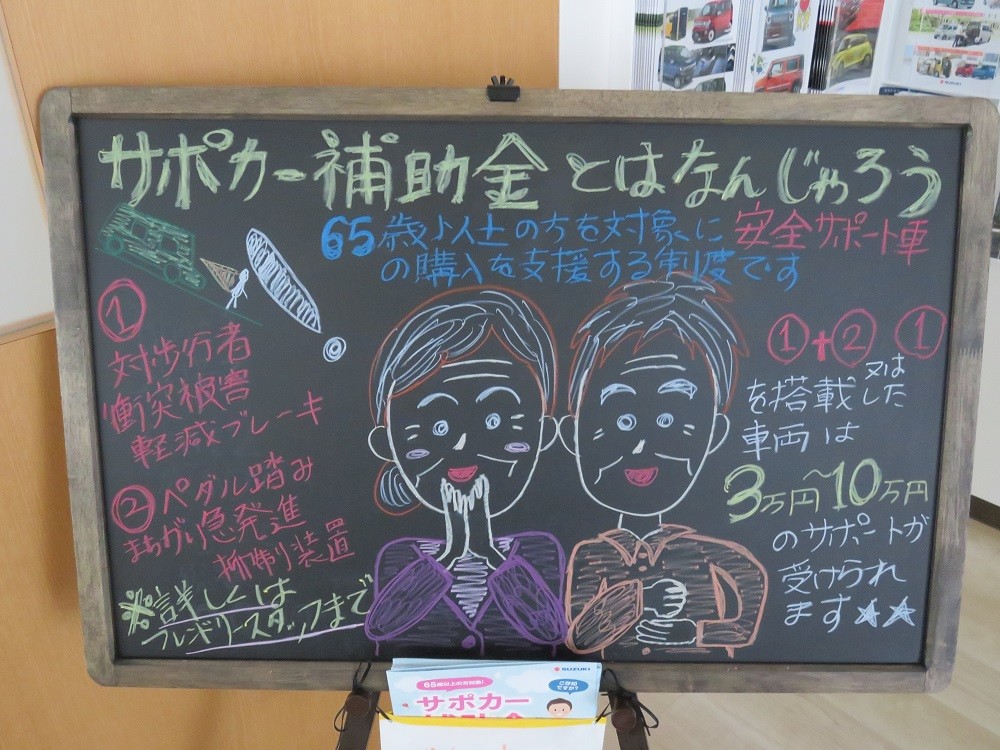 サポカー補助金とはなんじゃろう
65歳以上の方を対象に安全サポート車
の購入を支援する制度です
①
対歩行者
衝突被害
軽減ブレーキ
②ペダル踏み
まちがい急発進
抑制装置
※詳しくは
フレンドリースタッフまで
①+② 又は ①
を搭載した
車両は
3万円~10万円
のサポートが
受けられ
ます★★
SUZUKI
65歳以上の方対象!
ご存知
ですか?
サポカー